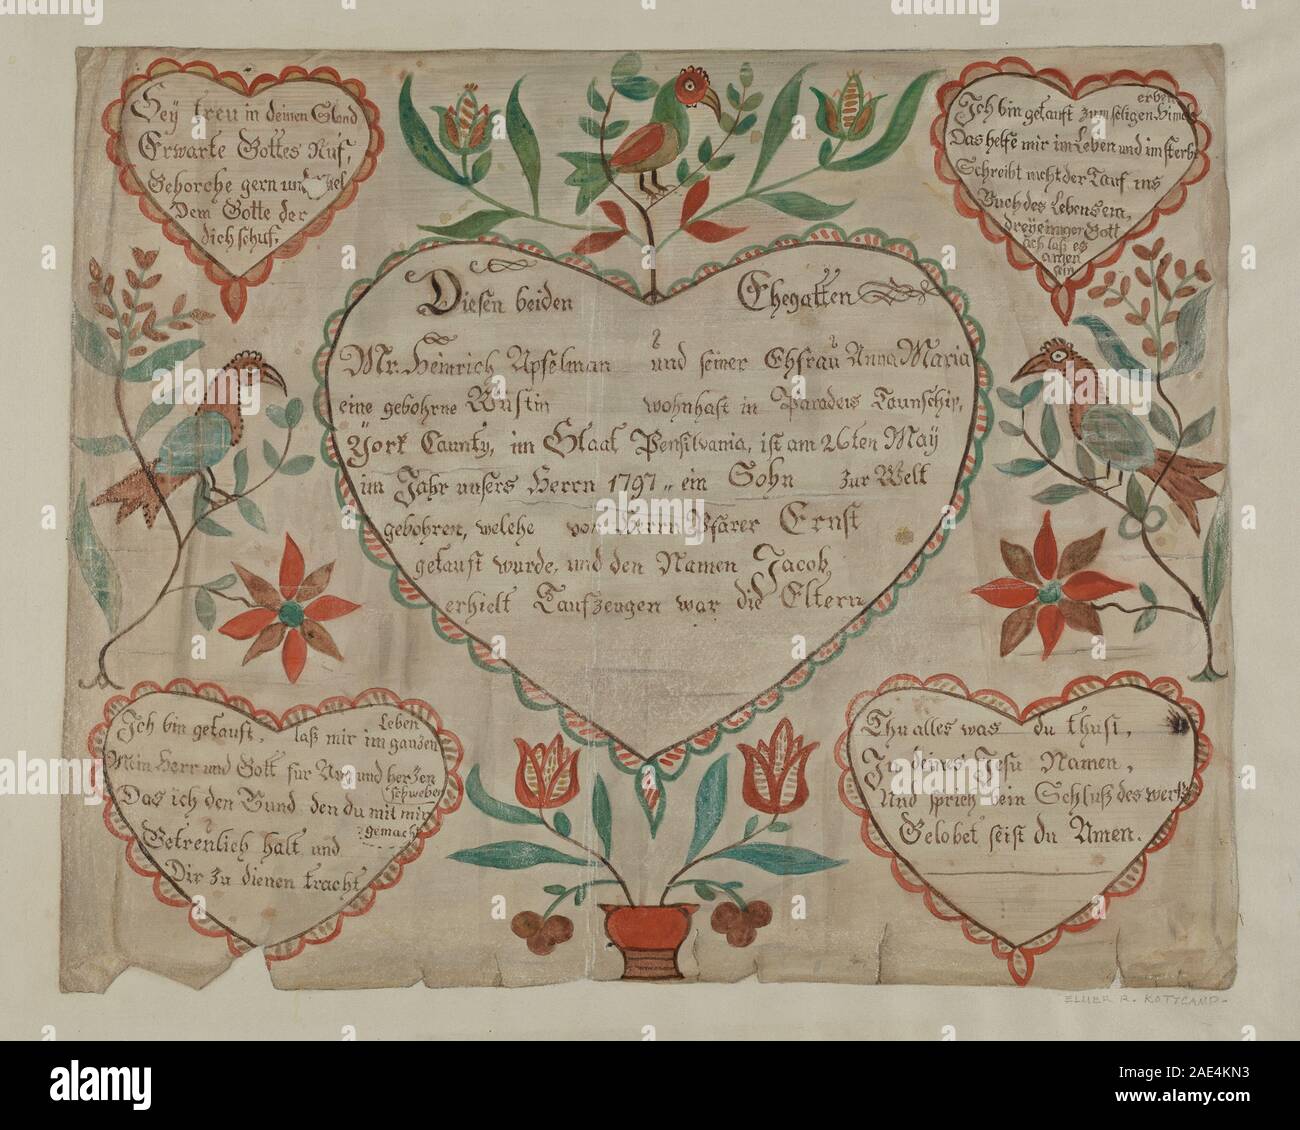 Sey treu in deinen Stand
Erwarte Gottes Ruf,
Gehorche gern und
Dem Gotte der
dich schuf.
erben
Ich bin getauft zum seligen Himels
Das helfe mir im Leben und im sterben
Schreibt nicht der Tauf ins
Buch des Lebens ein,
dreyeiniger Gott
ach laß es
amen
sein
Diesen beiden Ehegatten
Mr. Heinrich Apfelman und seiner Ehfrau Anna Maria
eine gebohrne Wüstin wohnhaft in Paradeis Taunschip,
York Caunty, im Staat Pensilvania, ist am 26ten May
im Jahr unsers Herrn 1797 „ ein Sohn zur Welt
gebohren, welche von Herrn Pfarer Ernst
getauft wurde, und den Namen Jacob,
erhielt Taufzeugen war die Eltern
Leben
Ich bin getauft, laß mir im ganzen
Mein Herr und Gott für Aug und herzen
schweben
Das ich den Bund den du mit mir
gemacht
Getreulich halt und
Dir zu dienen tracht
Thu alles was du thust,
In deines Jesu Namen,
Und sprich beim Schluß des werks
Gelobet seist du Amen.
ELMER R. KOTTCAMP-
alamy
alamy
Image ID: 2AE4KN3
www.alamy.com